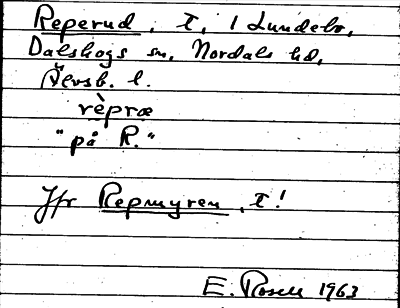 Reperud, T, i Lundebo,
Dalskogs sn, Nordals hd,
Älvsb. l.
rèpræ
"på R."
Jfr Repmyren, T!
E. Rosell 1963